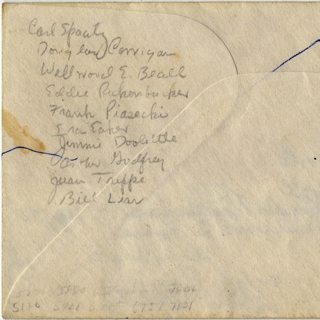 Carl Spaatz
Douglas Corrigan
Wellwood E. Beall
Eddie Rickenbacker
Frank Piasecki
Ira Eaker
Jimmie Doolittle
Arthur Godfrey
Juan Trippe
Bill Lear